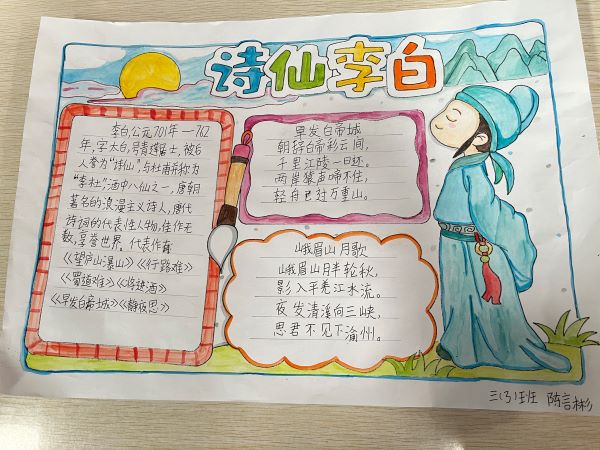 诗仙李白
李白,公元701年—762
年,字太白,号青莲居士,被后
人誉为"诗仙",与杜甫并称为
"李杜",酒中八仙之一,唐朝
著名的浪漫主义诗人,唐代
诗词的代表性人物,佳作无
数,享誉世界。代表作有
《望庐山瀑山》《行路难》
《蜀道难》《将进酒》
《早发白帝城》《静夜思》
早发白帝城
朝辞白帝彩云间,
千里江陵一日还。
两岸猿声啼不住,
轻舟已过万重山。
峨眉山月歌
峨眉山月半轮秋,
影入平羌江水流。
夜发清溪向三峡,
思君不见下渝州。
三(3)班 陈言彬